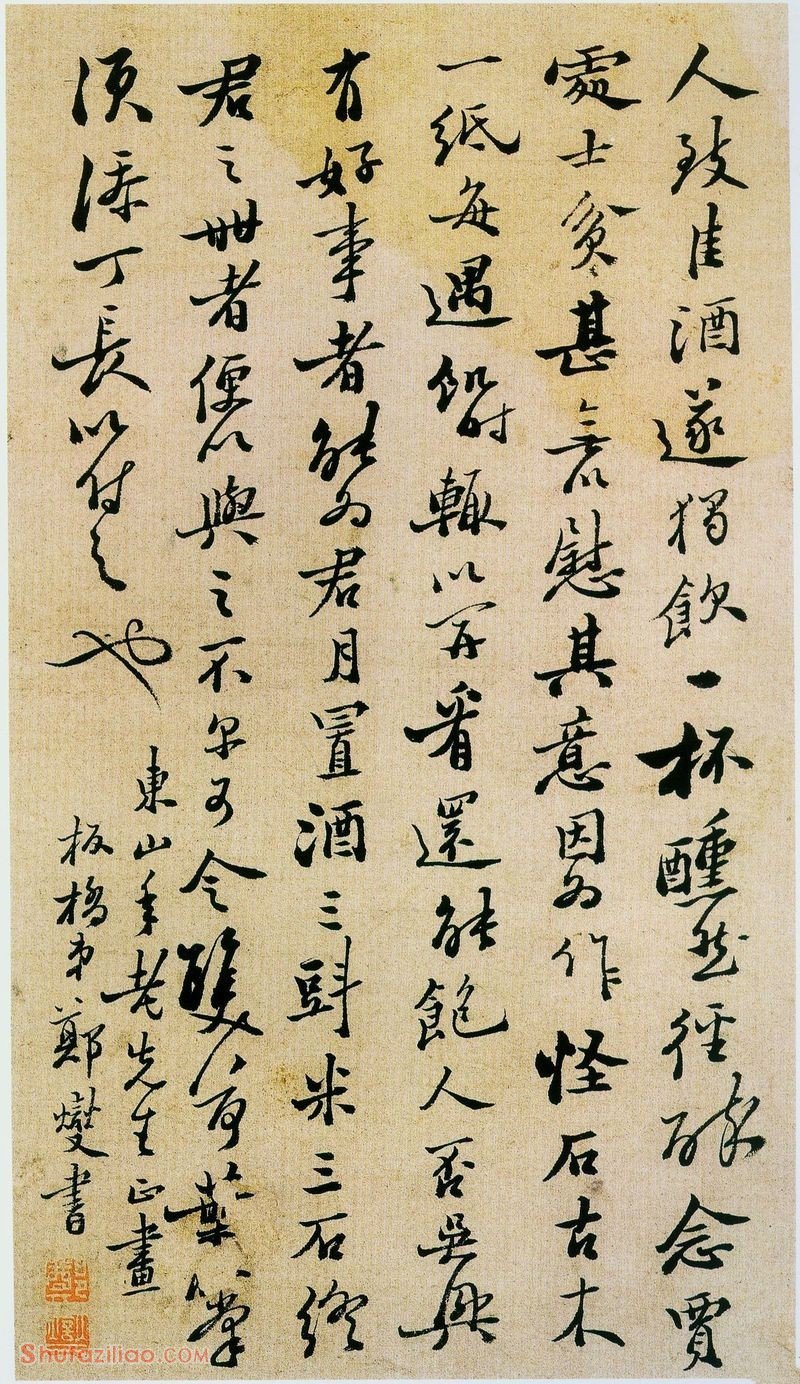 人致佳酒遂獨飲一杯醺然徑醉念賈
處士貧甚無以慰其意因為作怪石古木
一紙每遇飢時輒以開看還能飽人否吳興
有好事者能為君月置酒三㪷米三石終
君之世者便以與之不爾可令雙荷葉掌
須添丁長以付之也
東山年老先生正畫
板橋弟鄭燮書
Shufaziliao.COM